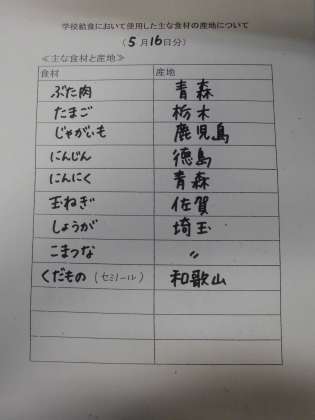 学校給食において使用した主な食材の産地について
(5月16日分)
≪主な食材と産地≫
食材 産地
ぶた肉 青森
たまご 栃木
じゃがいも 鹿児島
にんじん 徳島
にんにく 青森
玉ねぎ 佐賀
しょうが 埼玉
こまつな 〃
くだもの(セミノール) 和歌山